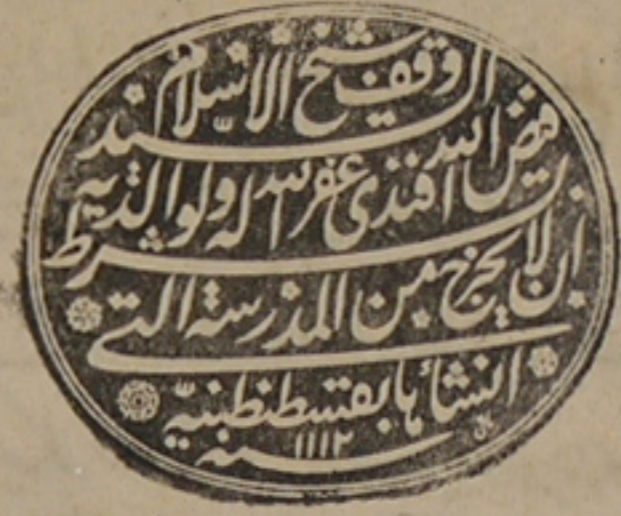 وقف شيخ الاسلام السيد
فيض الله افندى غفر الله له ولوالديه بشرط
ان لا يخرج من المدرسة التى
انشأها بقسطنطنية
سنه ١١١٢